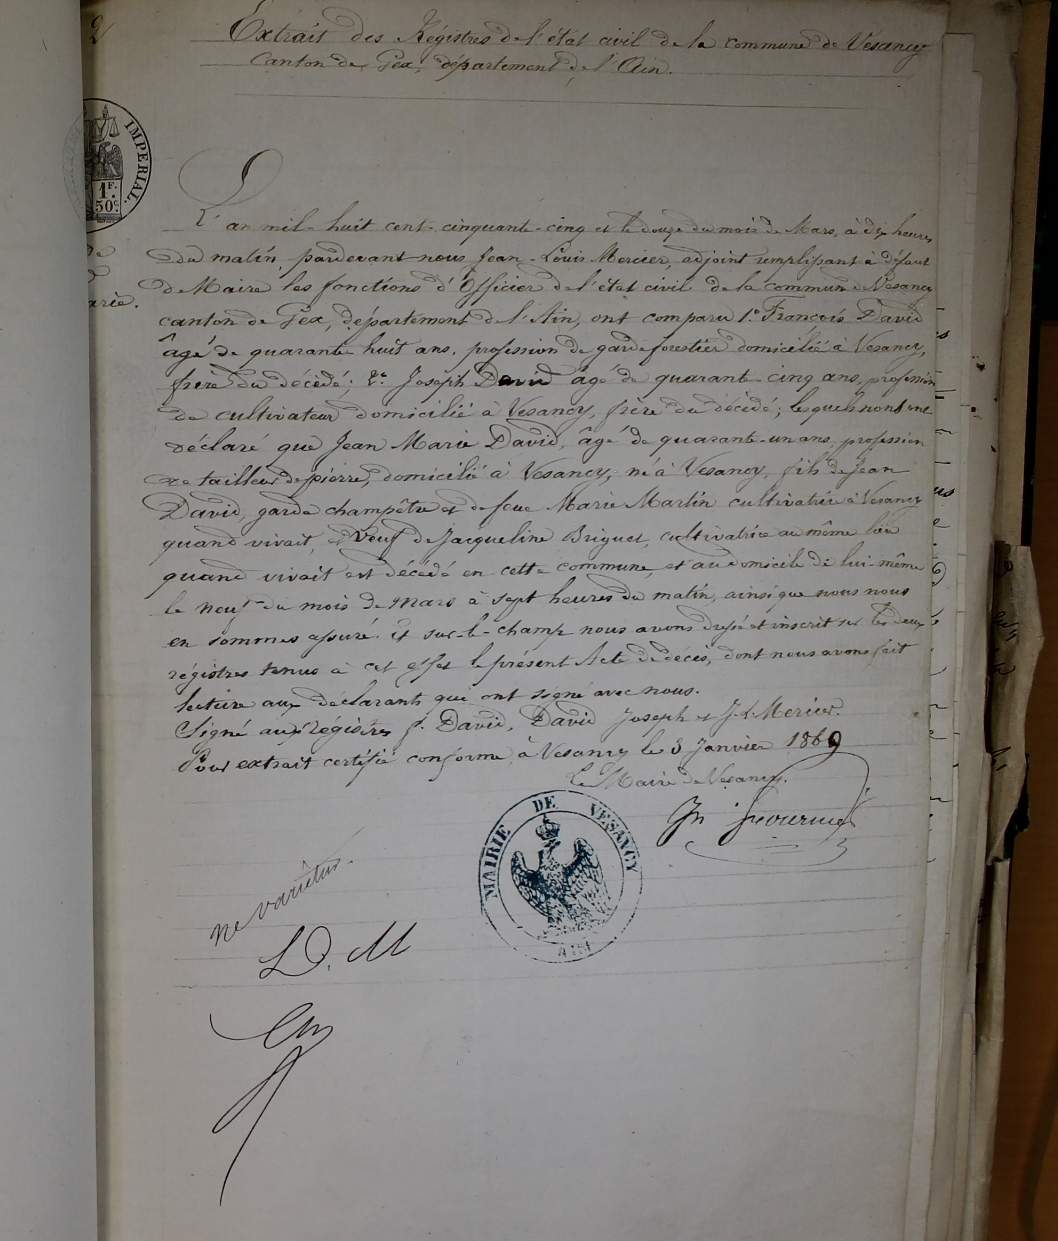 2
Extrait des Régistres de l'état civil de la commune de Vesancy
Canton de Gex, département de l'Ain.
IMPERIAL.
1F.
50c.
L'an mil-huit cent-cinquante-cinq et le douze du mois de Mars, à dix heures
du matin, pardevant nous Jean-Louis Mercier, adjoint remplissant à défaut
de Maire les fonctions d'Officier de l'état civil de la commune Vesancy
canton de Gex, département de l'Ain, ont comparu 1° François David
âgé de quarante huit ans, profession de garde forestier domicilié à Vesancy,
frère du décédé; 2° Joseph David âgé de quarante-cinq ans, profession
de cultivateur domicilié à Vesancy, frère du décédé; lequels nous ont
déclaré que Jean Marie David, âgé de quarante-un ans, profession
de tailleur de pierre, domicilié à Vesancy, né à Vesancy, fils de Jean
David, garde champêtre et de feue Marie Martin cultivatrice à Vesancy
quand vivait, veuf de Jacqueline Briguet, cultivatrice au même lieu
quand vivait est décédé en cette commune, et au domicile de lui-même
le neuf du mois de Mars à sept heures du matin, ainsi que nous nous
en sommes assuré. Et sur-le-champ nous avons dressé et inscrit sur les deux
régistres tenus à cet effet le présent Acte de décès, dont nous avons fait
lecture aux déclarants qui ont signé avec nous.
Signé aux régistres f. David, David Joseph et J.L. Mercier.
Pour extrait certifié conforme, à Vesancy le 8 Janvier 1869
Le Maire de Vesancy.
MAIRIE DE VESANCY
AIN
ne varietur.
D. M